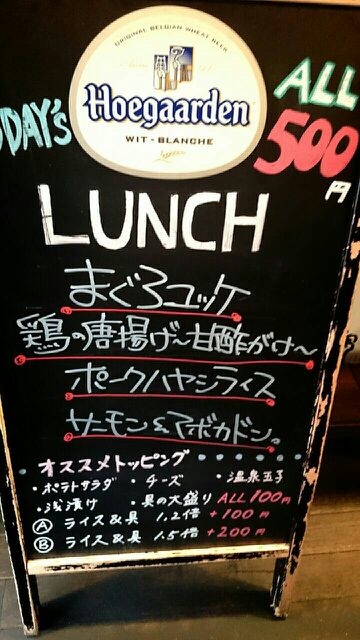 ORIGINAL BELGIAN WHEAT BEER
Hoegaarden
WIT-BLANCHE
ODAY'S
ALL
500
円
LUNCH
まぐろユッケ
鶏の唐揚げ〜甘酢がけ〜
ポークハヤシライス
サーモン&アボカドン。
オススメトッピング
・ポテトサラダ ・チーズ ・温泉玉子
・浅漬け ・具の大盛り ALL100円
Ⓐ ライス&具 1.2倍 +100円
Ⓑ ライス&具 1.5倍 +200円